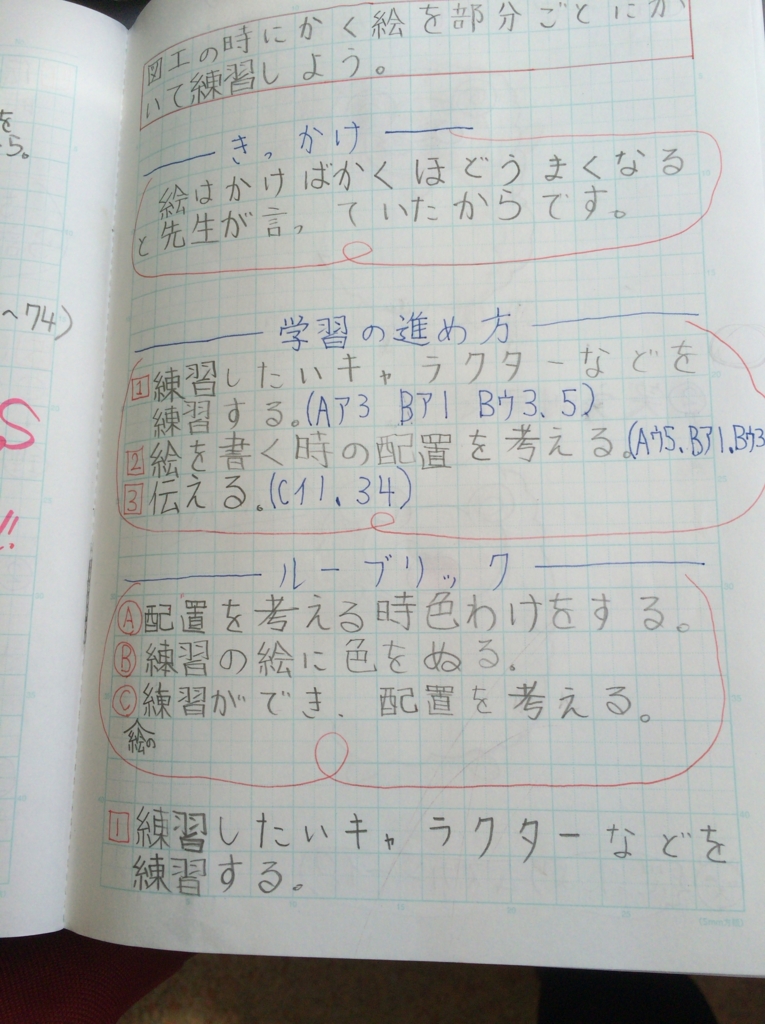 を
ら。
〜74)
S
!!
図工の時にかく絵を部分ごとにか
いて練習しよう。
きっかけ
絵はかけばかくほどうまくなる
と先生が言っていたからです。
学習の進め方
1 練習したいキャラクターなどを
練習する。(Aア3 Bア1 Bウ3、5)
2 絵を書く時の配置を考える。(Aウ5、Bア1、Bウ3
3 伝える。(Cイ1、34)
ルーブリック
A 配置を考える時色わけをする。
B 練習の絵に色をぬる。
C 練習ができ、配置を考える。
絵の
1 練習したいキャラクターなどを
練習する。